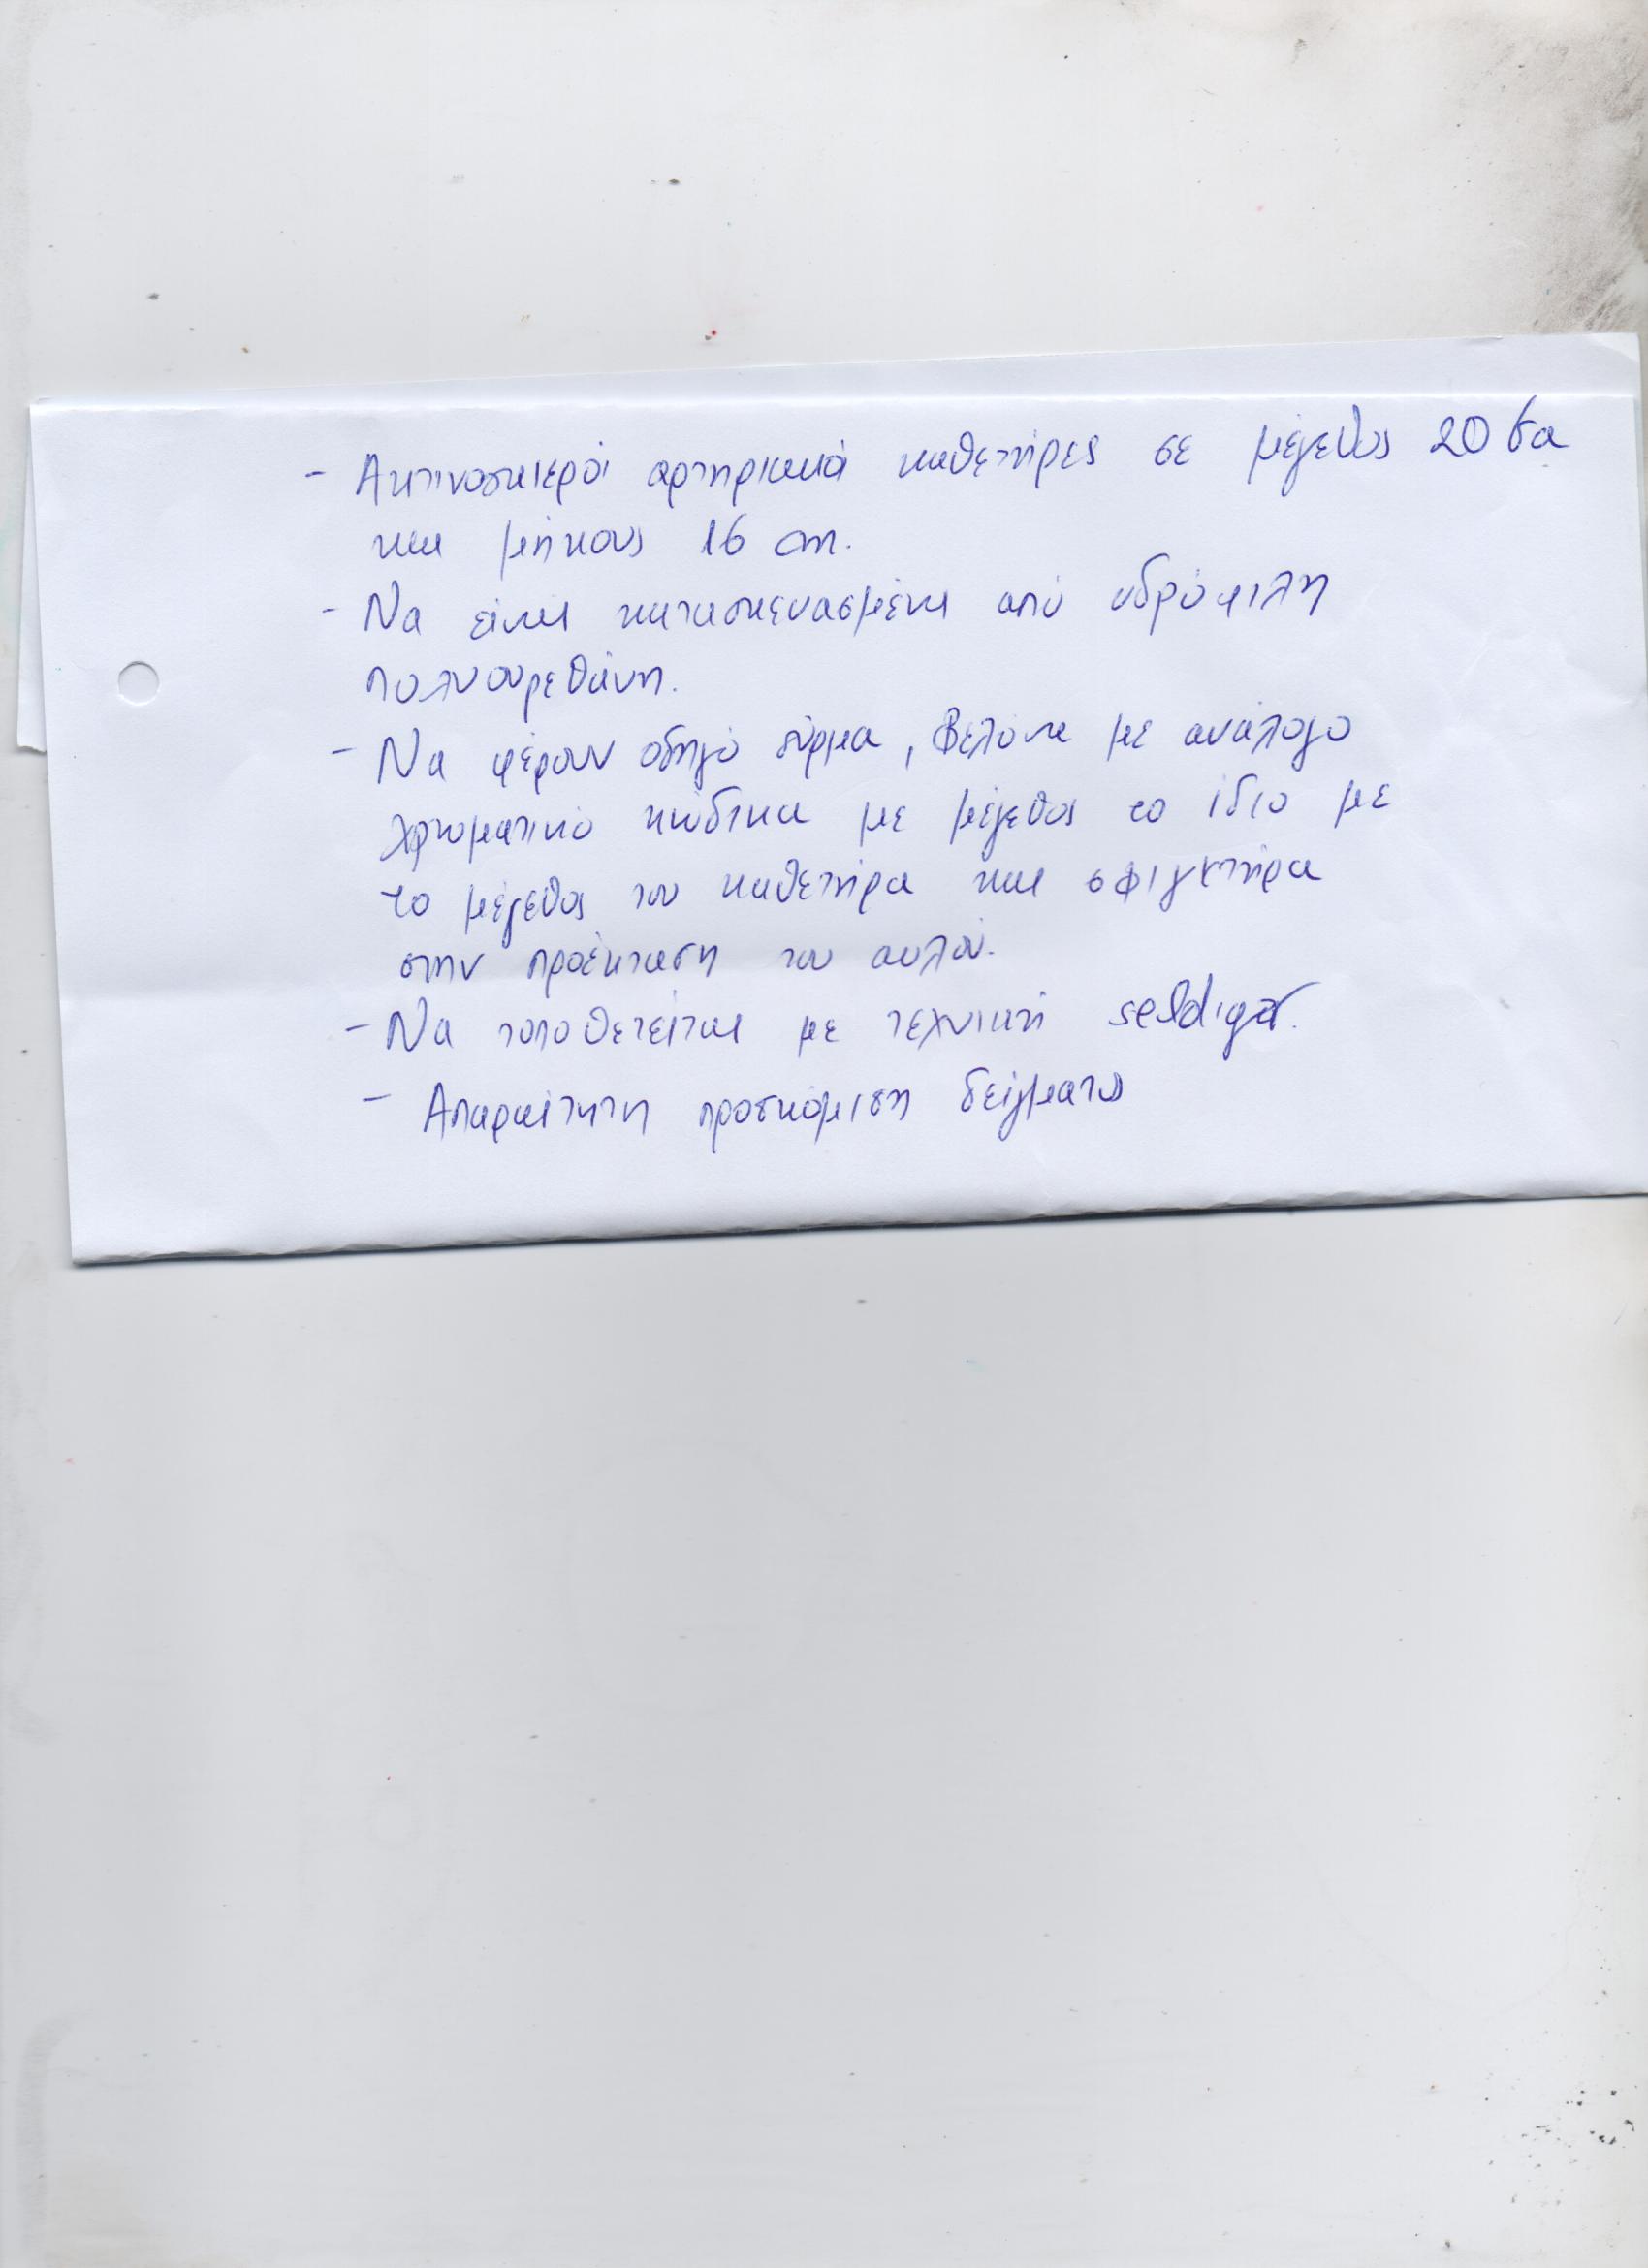 - Ακτινοσκιεροί αρτηριακοί καθετήρες σε μέγεθος 20 Ga
και μήκους 16 cm.
- Να είναι κατασκευασμένα από υδρόφιλη
πολυουρεθάνη.
- Να φέρουν οδηγό σύρμα, βελόνα με ανάλογο
χρωματικό κώδικα με μέγεθος το ίδιο με
το μέγεθος του καθετήρα και σφιγκτήρα
στην προέκταση του αυλού.
- Να τοποθετείται με τεχνική seldiger.
- Απαραίτητη προσκόμιση δείγματος